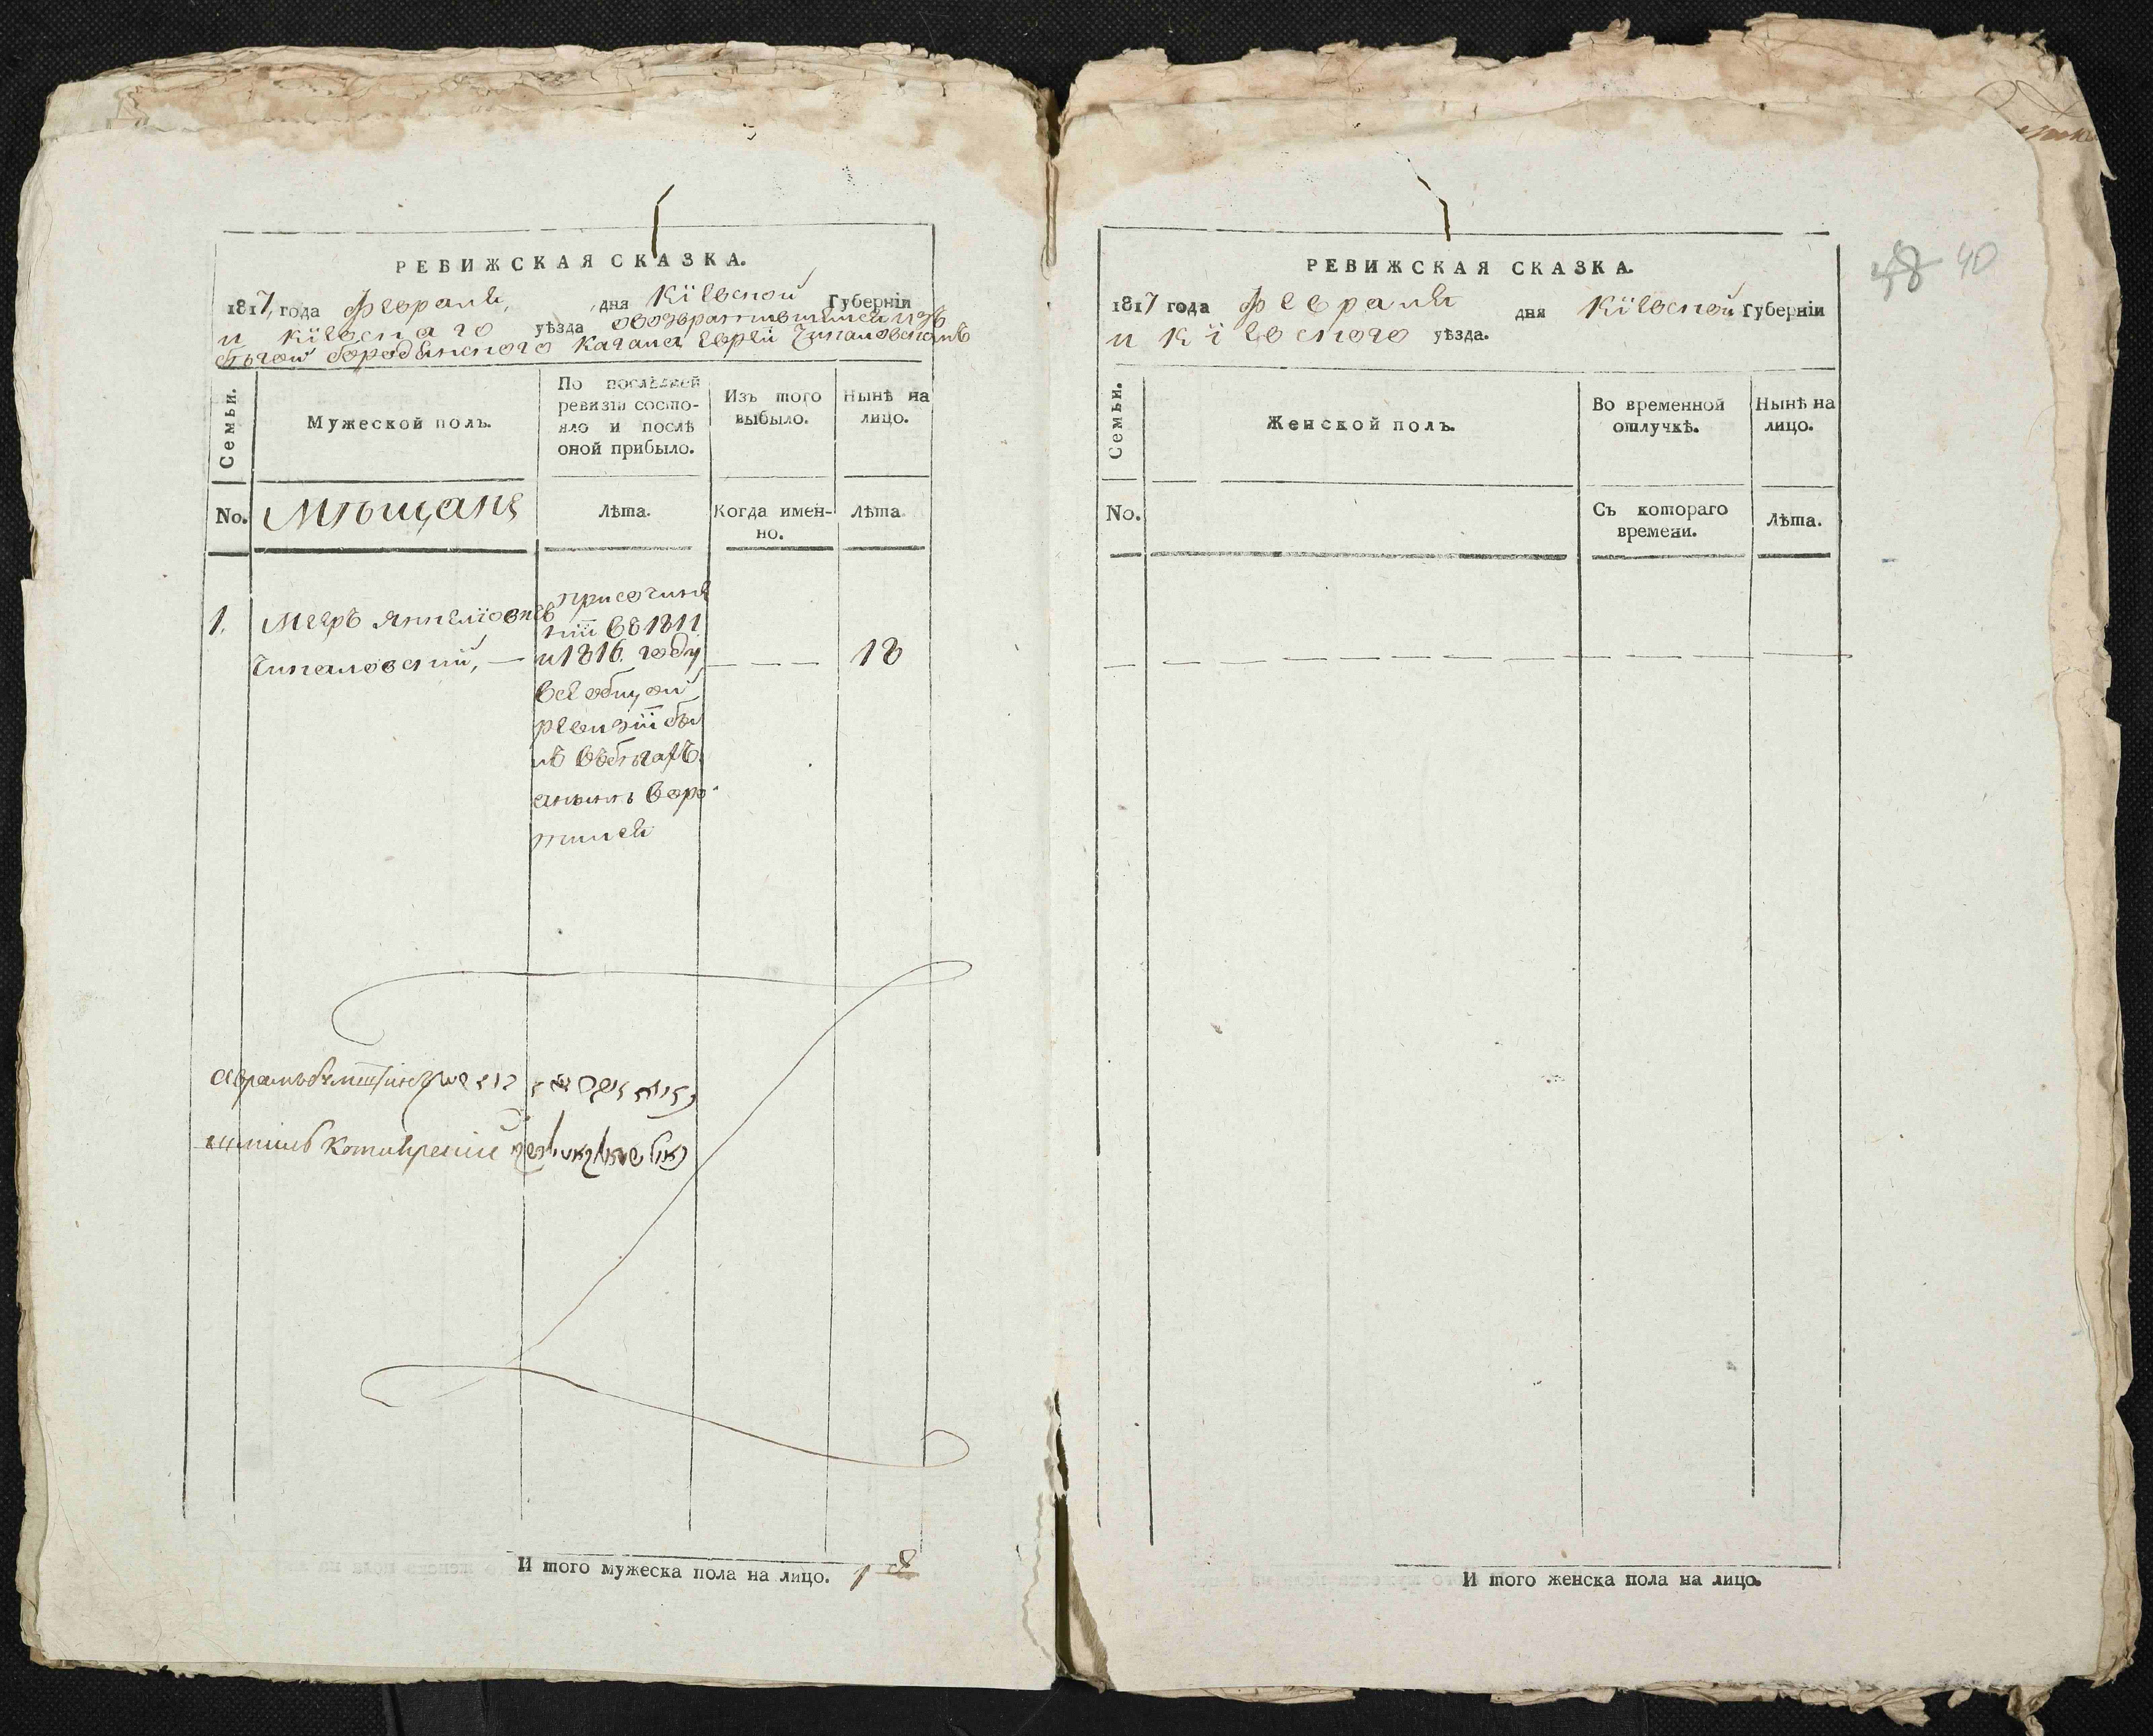 РЕВИЖСКАЯ СКАЗКА.
1817, года февраля, дня Кіевской Губерніи
и Кіевскаго уѣзда овозвратившимся изъ
бѣгов бородянского Кагала еврей Чикаловскомъ
Семьи.
Мужеской полъ.
По послѣдней ревизіи состо-
яло и послѣ
оной прибыло.
Изъ того
выбыло.
Нынѣ на
лицо.
No.
Мѣщане
Лѣта.
Когда имен-
но.
Лѣта
1. Мееръ Янкелiовичъ
Чикаловский, —
при сочине
нiи въ 1811
и 1816 году
всеобщой
ревизiи бы
лъ вбегахъ
анынѣ воро
тился
— — —
18
аврамъ
шмиль
И того мужеска пола на лицо. 1
РЕВИЖСКАЯ СКАЗКА.
38 40
1817 года февраля дня Кіевской Губерніи
и Кіевского уѣзда.
Семьи.
Женской полъ.
Во временной
отлучкѣ.
Нынѣ на
лицо.
No.
Съ котораго
времени.
Лѣта.
И того женска пола на лицо.